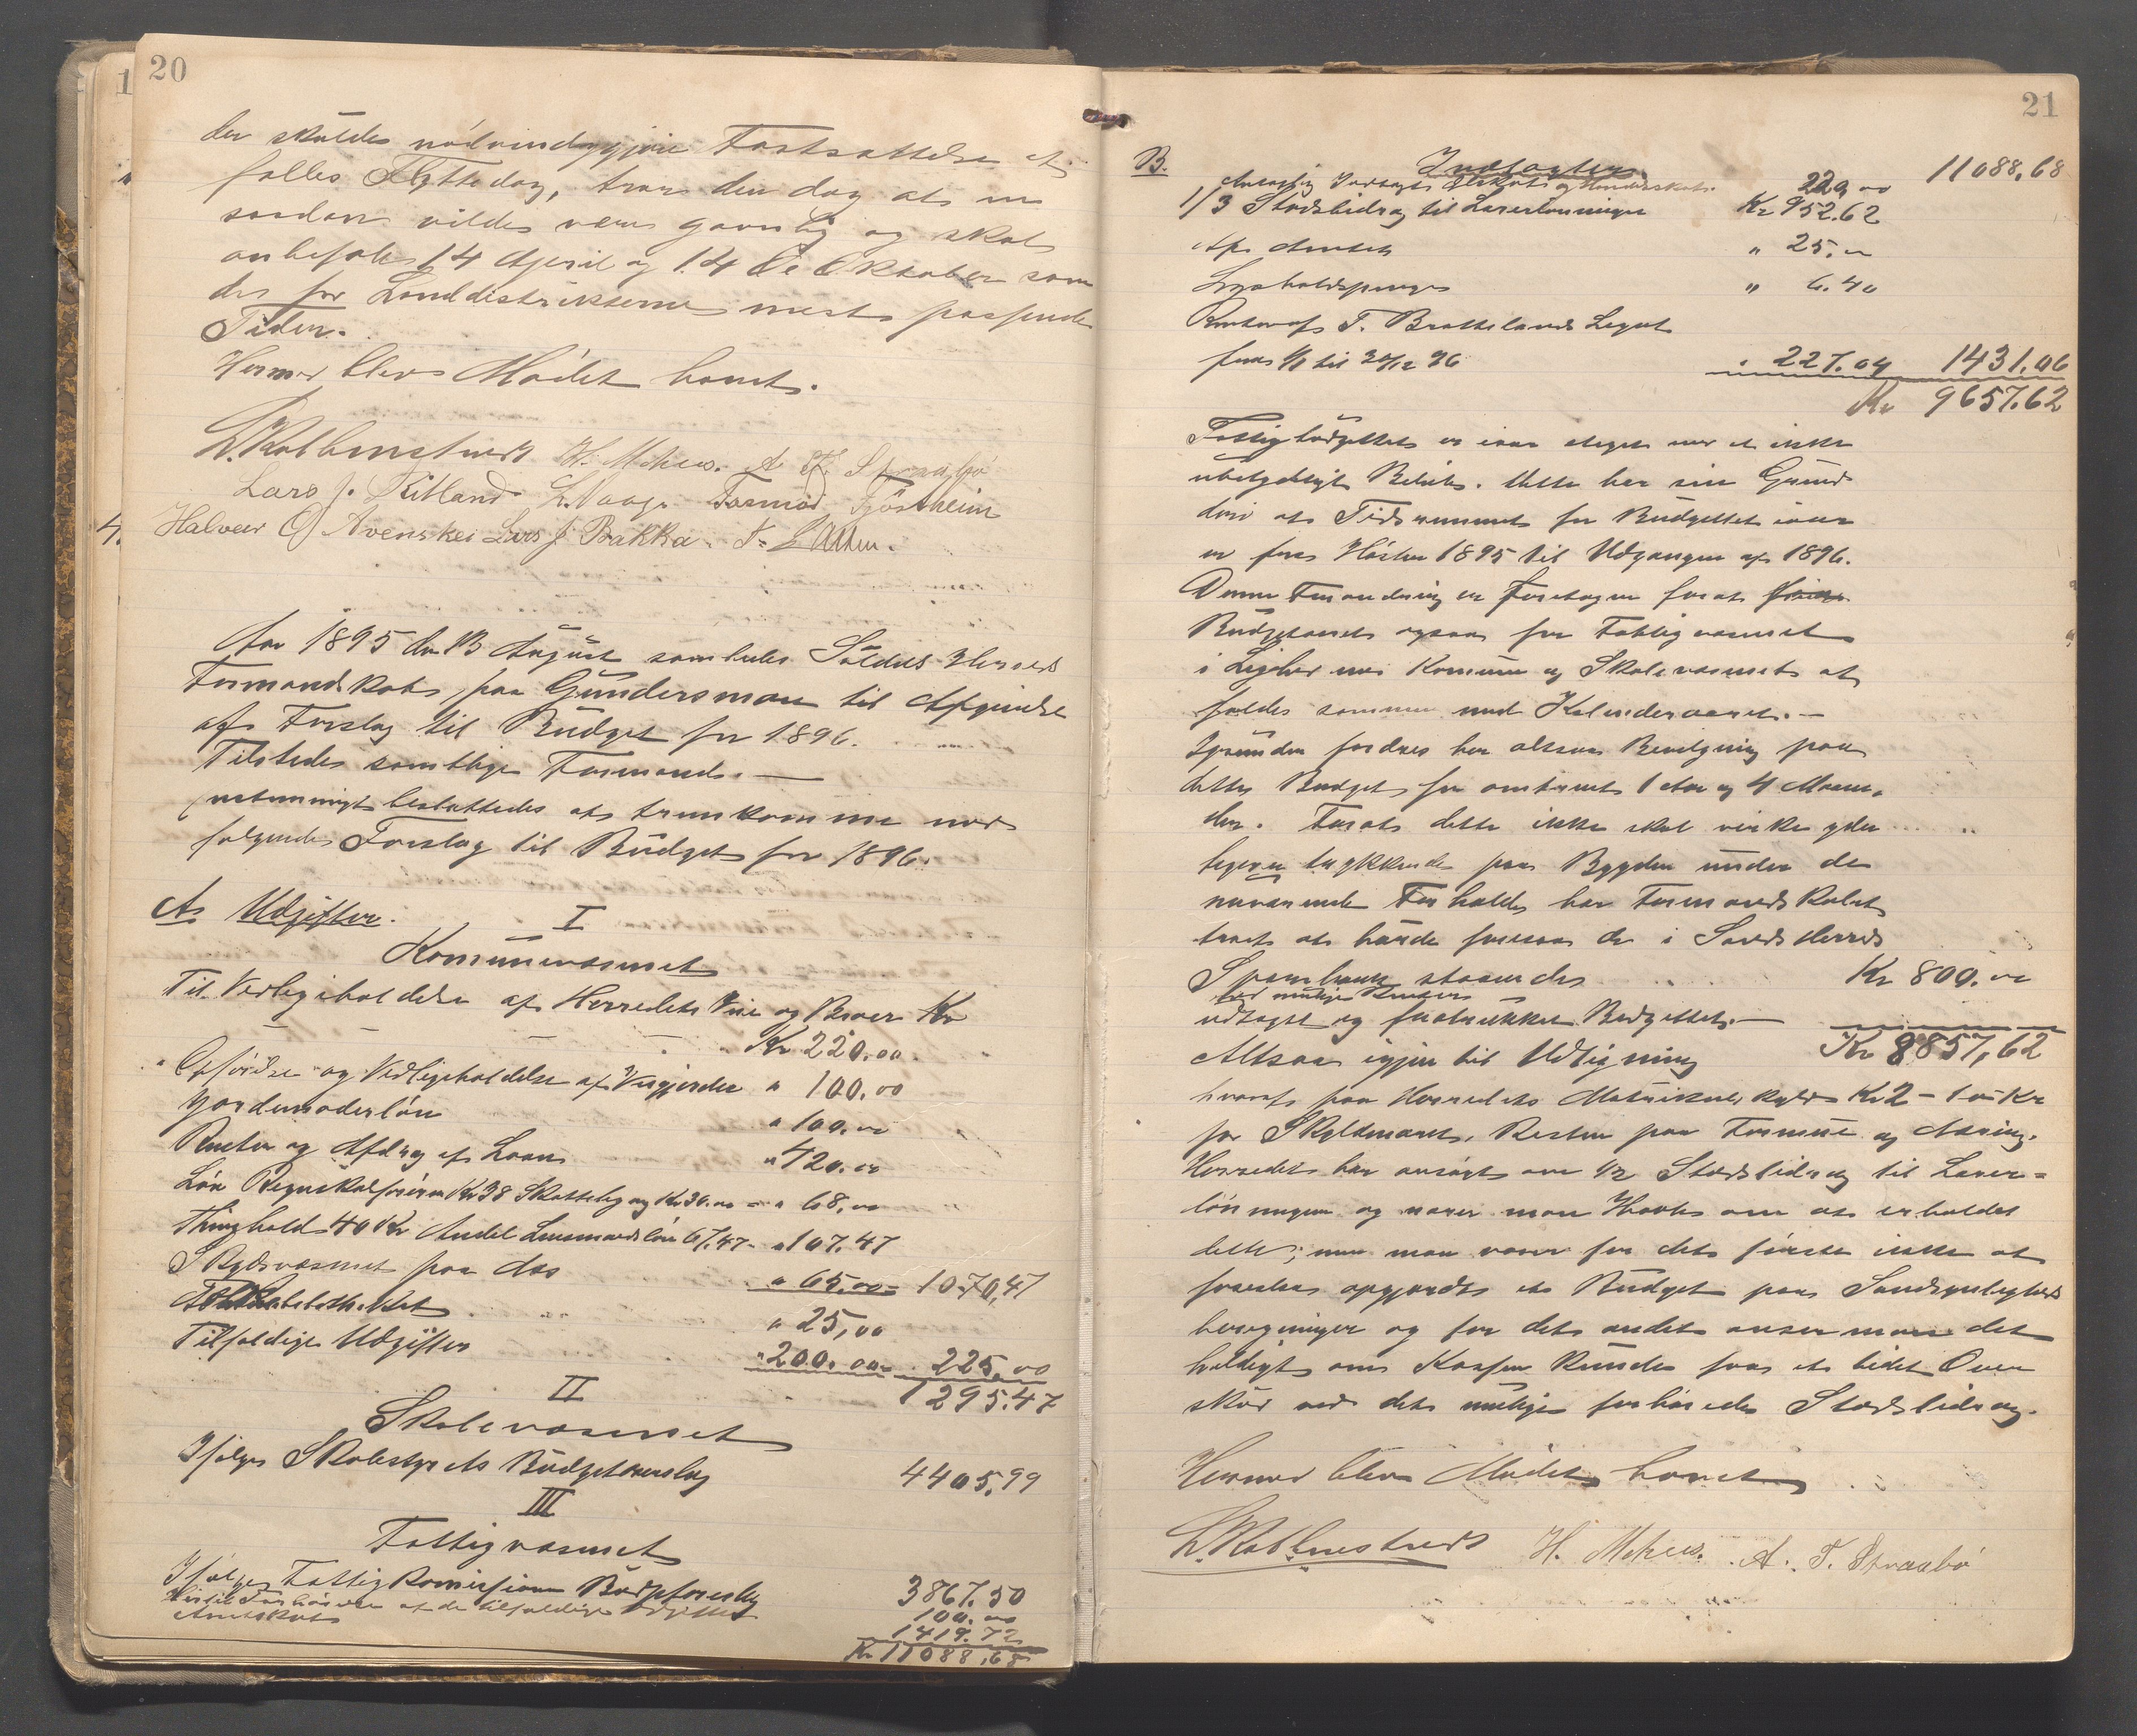 20
der skulde nødvendiggjøre Fastsættelse af
fælles Flyttedag, tror den dog at en
saadan vilde være gavnlig og skal
anbefale 14 April og 14 Oktober som
de for Landdistrikterne mest passende
Tider.
Hermed blev Mødet hævet.
H. Mehus. A. T.
Lars J. Kitland L. Vaage Tormod Fjøsheim
Halvar O Svenskei Lars J. Bakka
4.
Aar 1895 den 13 August samledes Suldals Herreds
Formandskab paa Gundersmoen til Afgivelse
af Forslag til Budget for 1896.
Tilstede samtlige Formænd. —
Enstemmigt besluttedes at fremkomme med
følgende Forslag til Budget for 1896.
A. Udgifter. I
Kommunevæsenet
Til Vedligeholdelse af Herredets Veie og Broer Kr
Kr 220.00
Opførelse og Vedligeholdelse af Veigjerder " 100.00
Jordemoderløn " 100.00
Renter og Afdrag af Laan " 420.00
Løn Regnskabsfører Kr 38 Skatteleg og Kr 30.00 = " 68,00
Thinghold 40 Kr Andel Lensmandsløn 67.47 = " 107.47
Skydsvæsenet paa Aas " 65.00 = 1070,47
" 25,00
Tilfældige Udgifter " 200.00 = 225,00
1295.47
II
Skolevæsenet
Ifølge Skolestyrets Budgetoverslag 4405,99
III
Fattigvæsenet
Ifølge Fattigkomissionens Budgetforslag 3867.50
Hertil Forhøielse af de tilfældige Udgifter 100.00
Amtsskat 1419.72
Kr 11088,68
21
B. Indtægter. 11088,68
220,00
1/3 Statsbidrag til Lærerlønninger Kr 952.62
Af Amtet " 25,00
Lysholdspenge " 6.40
Renter af T. Brattelands Legat
fra 1/1 til 30/12 96 " 227.04 1431.06
Kr 9657.62
Fattigbudgettet er iaar steget med et ikke
ubetydeligt Beløb. Dette har sin Grund
deri at Tidsrummet for Budgettet iaar
er fra Høsten 1895 til Udgangen af 1896.
Denne Forandring er foretagen forat
Budgetaaret ogsaa for Fattigvæsenet
i Lighed med Komune og Skolevæsenet at
falde sammen med Kalenderaaret. —
Grunden fordres her altsaa Bevilgning paa
dette Budget for omtrent 1 Aar og 4 Maane-
der. Forat dette ikke skal virke yder
ligere trykkende paa Bygden under de
nuværende Forholde har Formandskabet
tænkt at burde foreslaa de i Sands Herreds
Sparebank staaende Kr 800.00
med mulige Renter
udtaget og fratrukket Budgettet. —
Altsaa igjen til Udligning Kr 8857,62
hvoraf paa Herredets Matrikulskyld Kr 2 —
for Skyldmark. Resten paa Formue og Næring.
Herredet har ansøgt om 1/2 Statsbidrag til Lærer=
lønningen og nærer man Haab om at erholde
dette; men man vover for det første ikke at
foreslaa opgjordt et Budget paa Sandsynligheds
beregninger og for det andet anser man det
heldigt om Kassen kunde faa et lidet Over
skud ved det mulige forhøiede Statsbidrag.
Hermed blev Mødet hævet
H. Mehus. A. T. Straabø